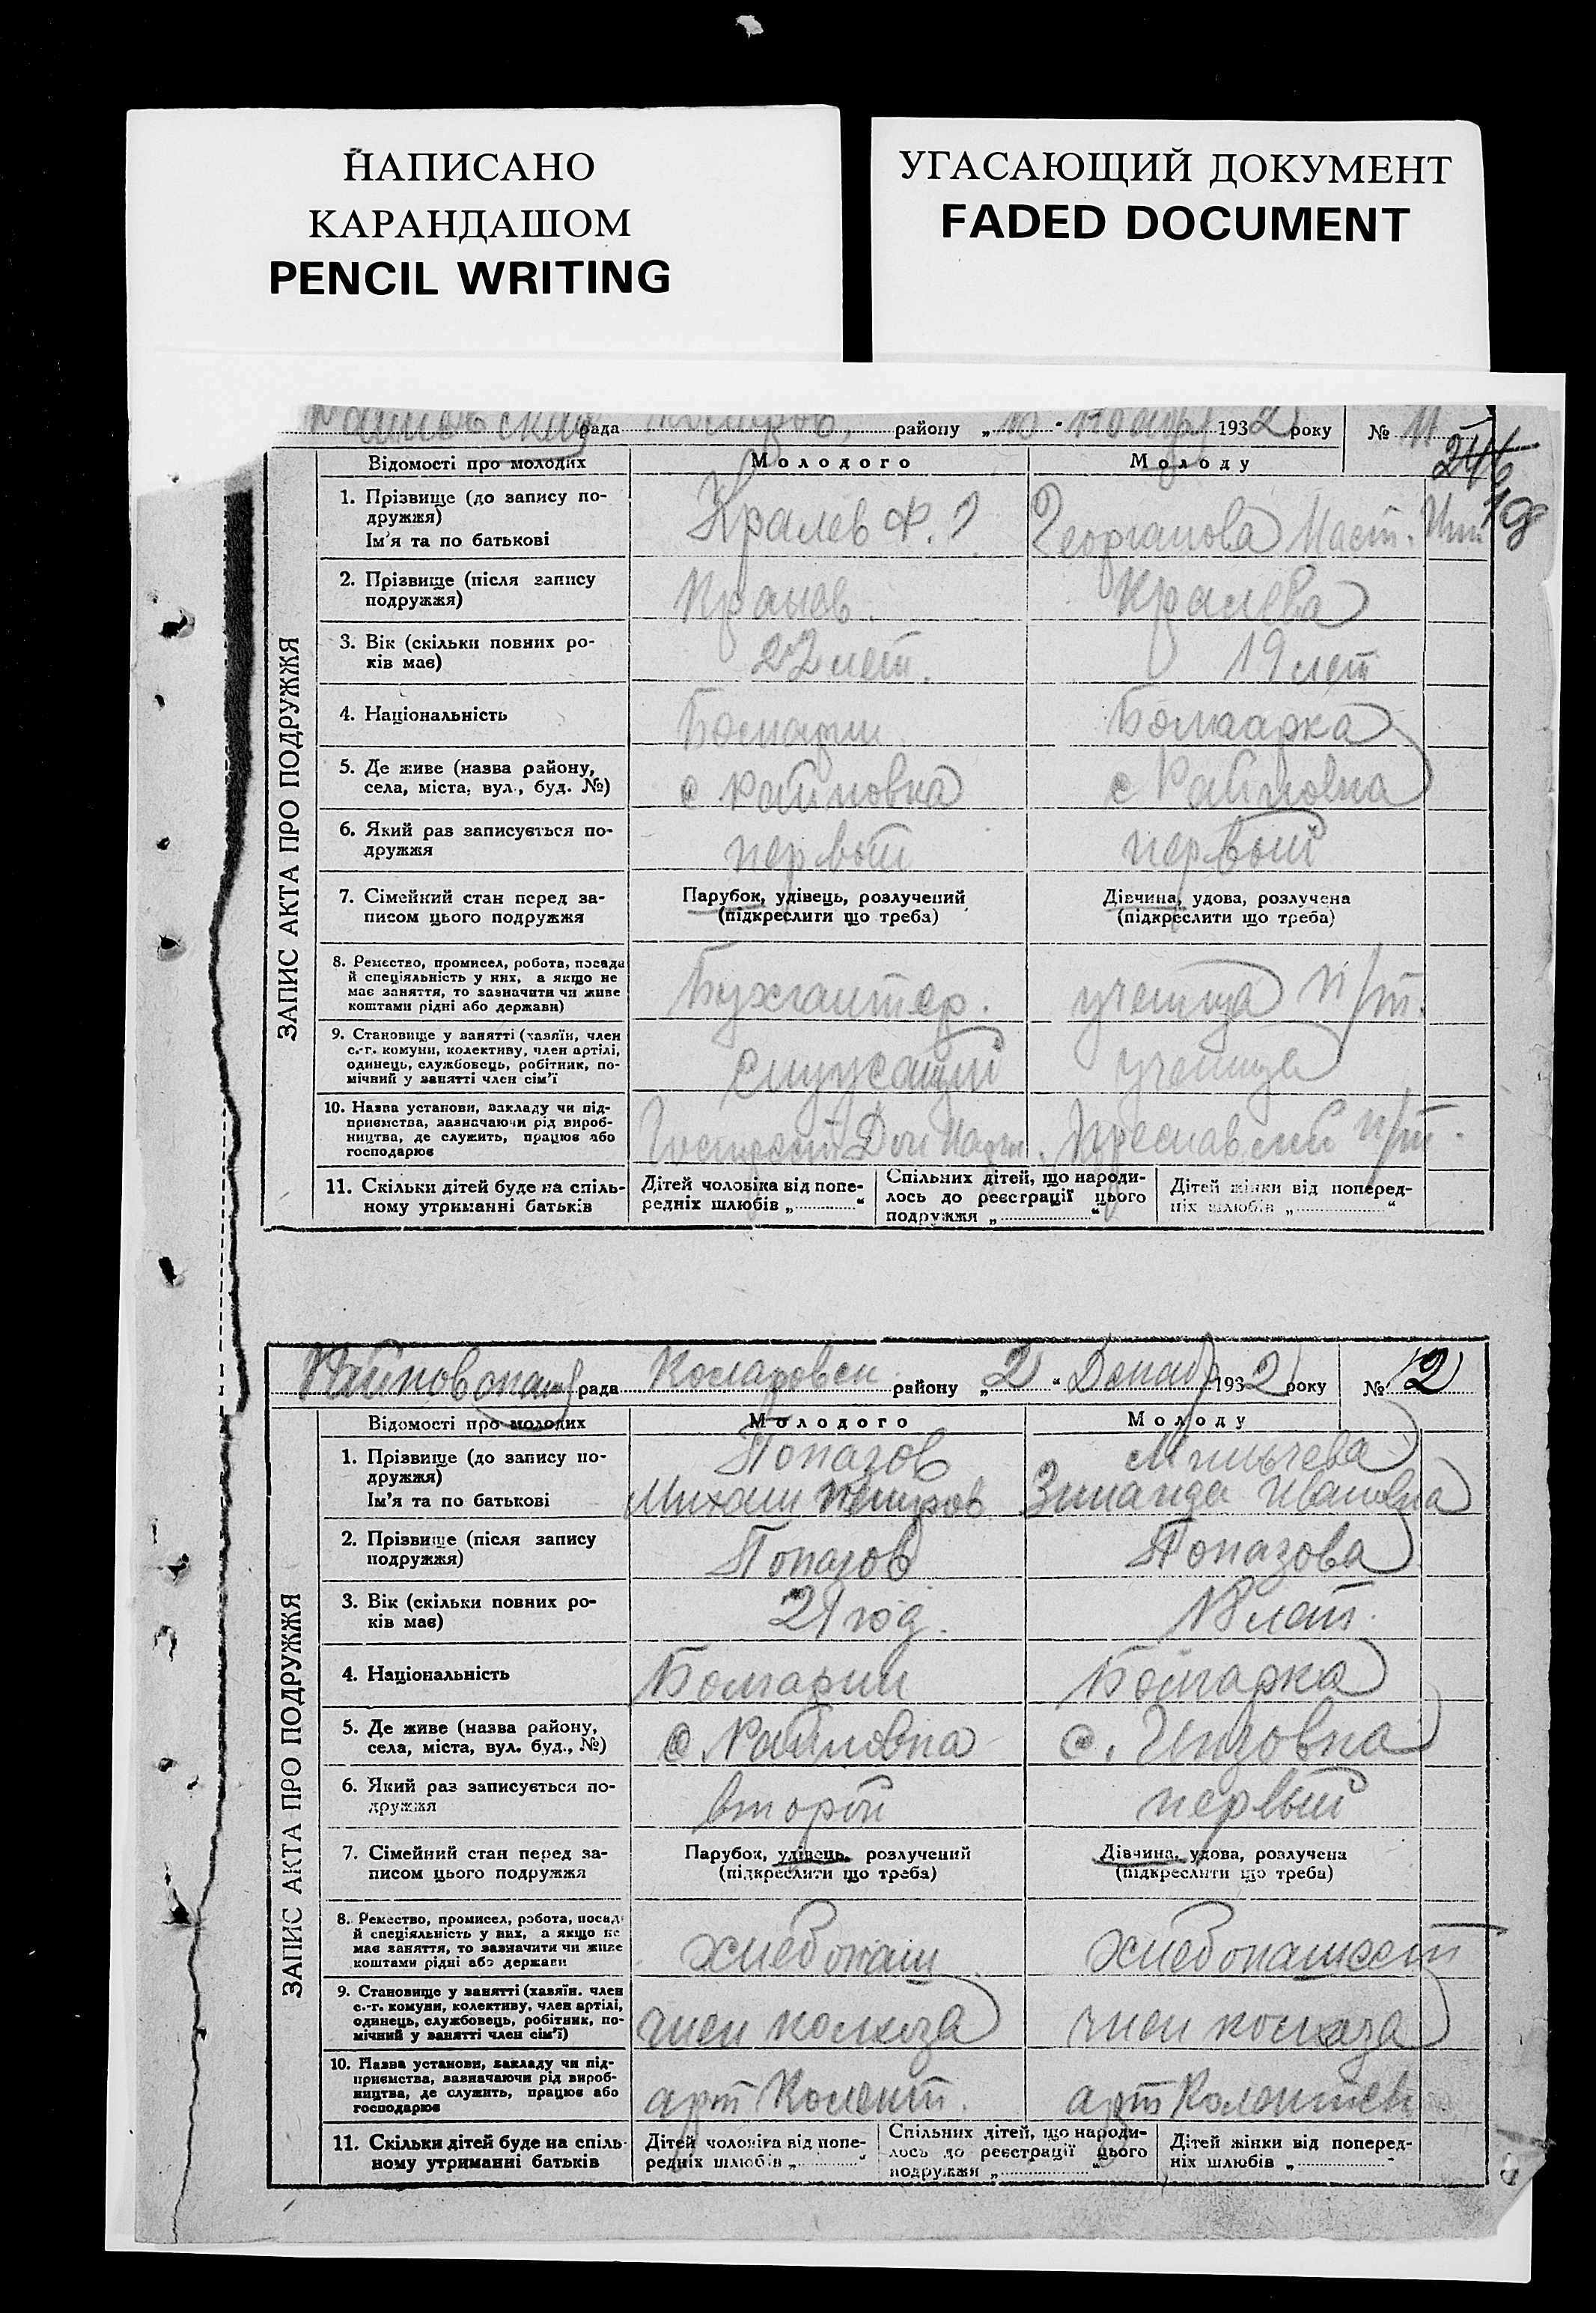 НАПИСАНО
КАРАНДАШОМ
PENCIL WRITING
УГАСАЮЩИЙ ДОКУМЕНТ
FADED DOCUMENT
рада району „ “ 1932 року № 11
246
198
ЗАПИС АКТА ПРО ПОДРУЖЖЯ
Відомості про молодих Молодого Молоду
1. Прізвище (до запису по-
дружжя)
Ім'я та по батькові
Кралев Ф. Г.
2. Прізвище (після запису
подружжя)
Кралева
3. Вік (скільки повних ро-
ків має)
22 лет. 19 лет
4. Національність
Болгарин Болгарка
5. Де живе (назва району,
села, міста, вул., буд. №)
с Райновка с Райновка
6. Який раз записується по-
дружжя
первый первый
7. Сімейний стан перед за-
писом цього подружжя
Парубок, удівець, розлучений
(підкреслити що треба)
Дівчина, удова, розлучена
(підкреслити що треба)
8. Ремество, промисел, робота, посада
й спеціяльність у них, а якщо не
має заняття, то зазначити чи живе
коштами рідні або держави)
Бухгалтер. ученица п/т.
9. Становище у занятті (хазяїн, член
с.-г. комуни, колективу, член артілі,
одинець, службовець, робітник, по-
мічний у занятті член сім'ї
служащий ученица
10. Назва установи, закладу чи під-
приємства, зазначаючи рід вироб-
ництва, де служить, працює або
господарює
п/т.
11. Скільки дітей буде на спіль-
ному утриманні батьків
Дітей чоловіка від попе-
редніх шлюбів „ “
Спільних дітей, що народи-
лось до реєстрації цього
подружжя „ “
Дітей жінки від поперед-
ніх шлюбів „ “
Райновская рада Коларовск району „2“ Декаб 1932 року № 12
ЗАПИС АКТА ПРО ПОДРУЖЖЯ
Відомості про молодих Молодого Молоду
1. Прізвище (до запису по-
дружжя)
Ім'я та по батькові
Топазов
Михаил
Зинаида Ивановна
2. Прізвище (після запису
подружжя)
Топазов Топазова
3. Вік (скільки повних ро-
ків має)
21 год. 18 лет.
4. Національність
Болгарин Болгарка
5. Де живе (назва району,
села, міста, вул. буд., №)
с. Райновка
6. Який раз записується по-
дружжя
второй первый
7. Сімейний стан перед за-
писом цього подружжя
Парубок, удівець, розлучений
(підкреслити що треба)
Дівчина, удова, розлучена
(підкреслити що треба)
8. Ремество, промисел, робота, посада
й спеціяльність у них, а якщо не
має заняття, то зазначити чи живе
коштами рідні або держави
хлебопаш хлебопашест
9. Становище у занятті (хазяїн. член
с.-г. комуни, колективу, член артілі,
одинець, службовець, робітник, по-
мічний у занятті член сім'ї)
член колхоза член колхоза
10. Назва установи, закладу чи під-
приємства, зазначаючи рід вироб-
ництва, де служить, працює або
господарює
арт арт
11. Скільки дітей буде на спіль-
ному утриманні батьків
Дітей чоловіка від попе-
редніх шлюбів „ “
Спільних дітей, що народи-
лось до реєстрації цього
подружжя „ “
Дітей жінки від поперед-
ніх шлюбів „ “